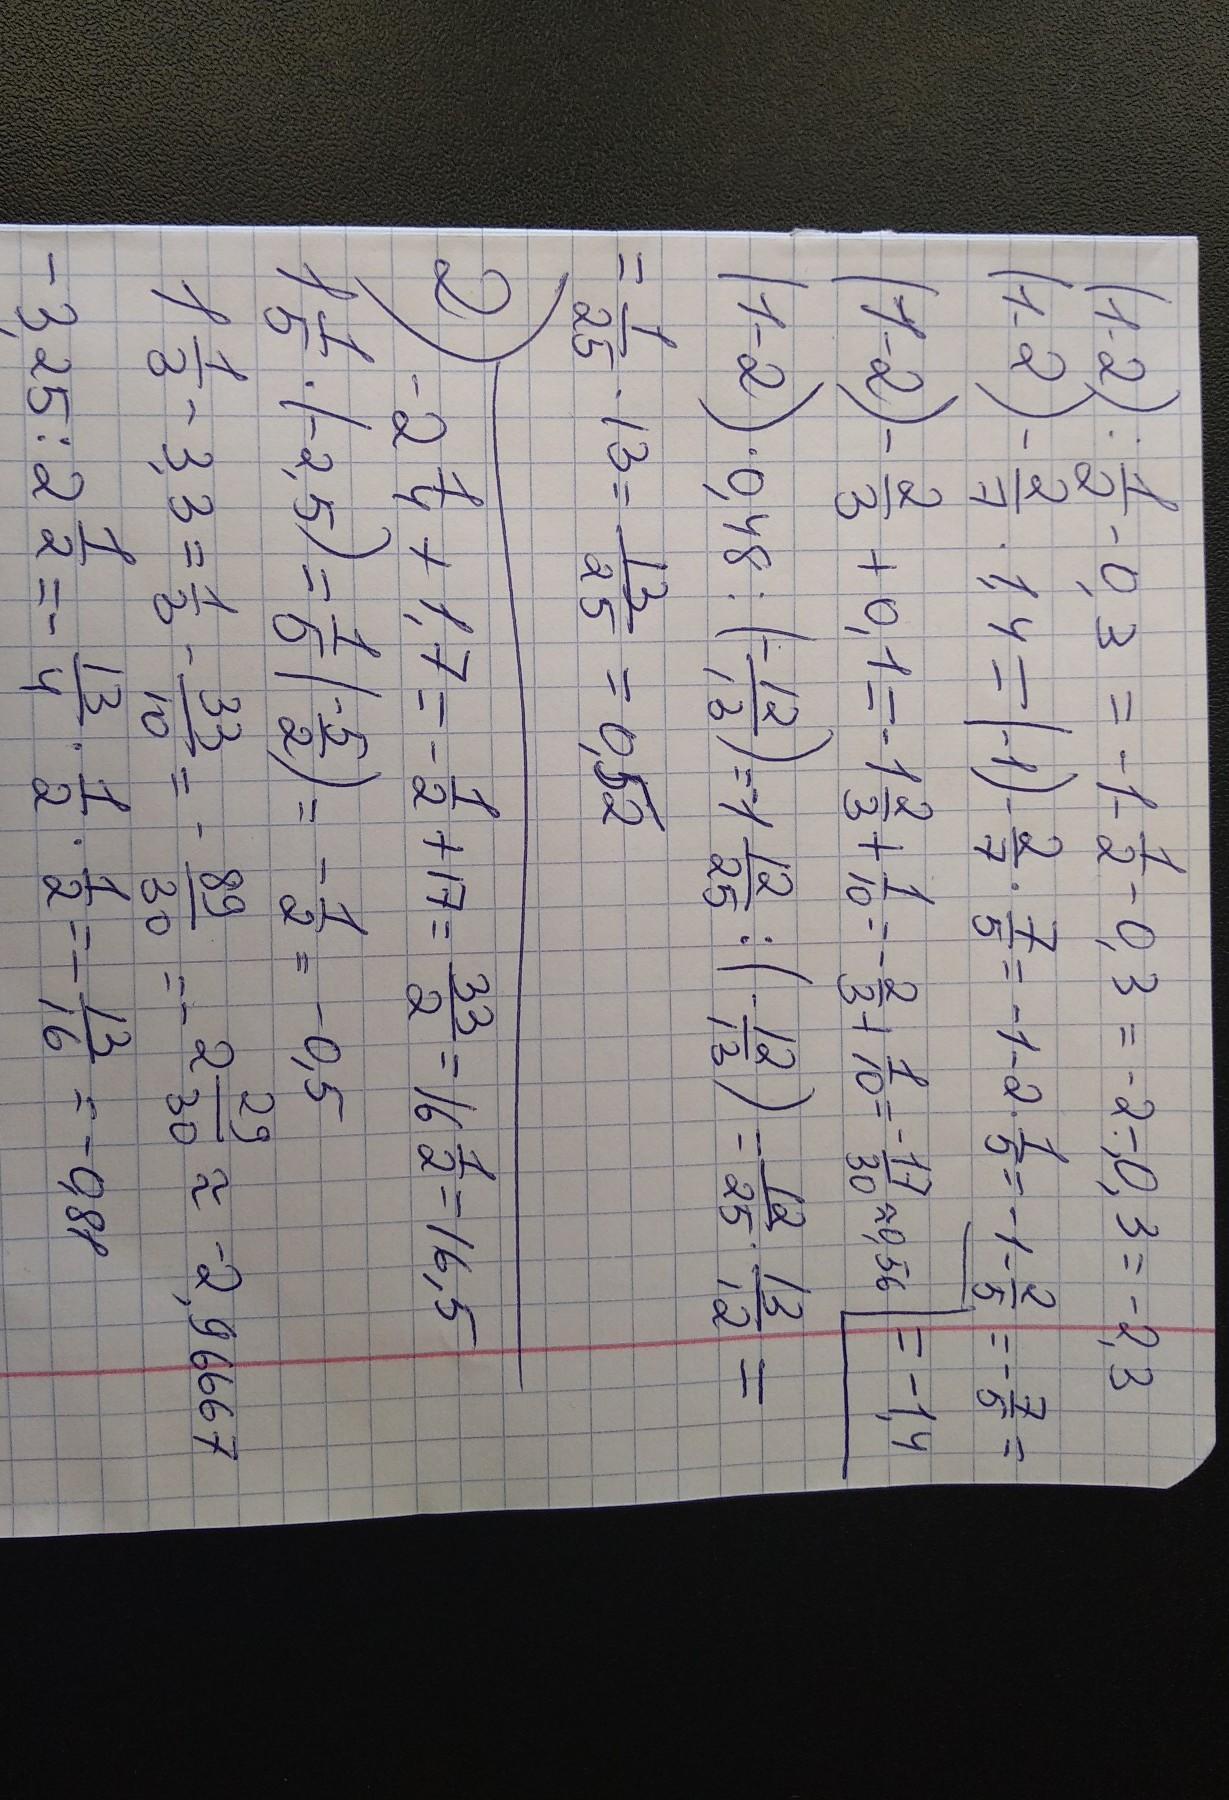 (1-2) : 1/2 - 0,3 = -1 - 1/2 - 0,3 = -2 - 0,3 = -2,3
(1-2) - 2/7 · 1,4 = (-1) - 2/7 · 7/5 = -1 - 2 · 1/5 = -1 - 2/5 = -7/5 =
= -1,4
(1-2) - 2/3 + 0,1 = -1 2/3 + 1/10 = -2/3 + 1/10 = -17/30 ≈ 0,56
(1-2) · 0,48 : (-12/13) = 1 12/25 : (-12/13) = 12/25 · 13/12 =
= 1/25 · 13 = 13/25 = 0,52
2) -2 1/4 + 1,7 = -1/2 + 17 = 33/2 = 16 1/2 = 16,5
1 1/5 · (-2,5) = 1/5 (-5/2) = -1/2 = -0,5
1 1/3 - 3,3 = 1/3 - 33/10 = -89/30 = -2 29/30 ≈ -2,96667
-3,25 : 2 1/2 = -13/4 · 1/2 · 1/2 = -13/16 = -0,81